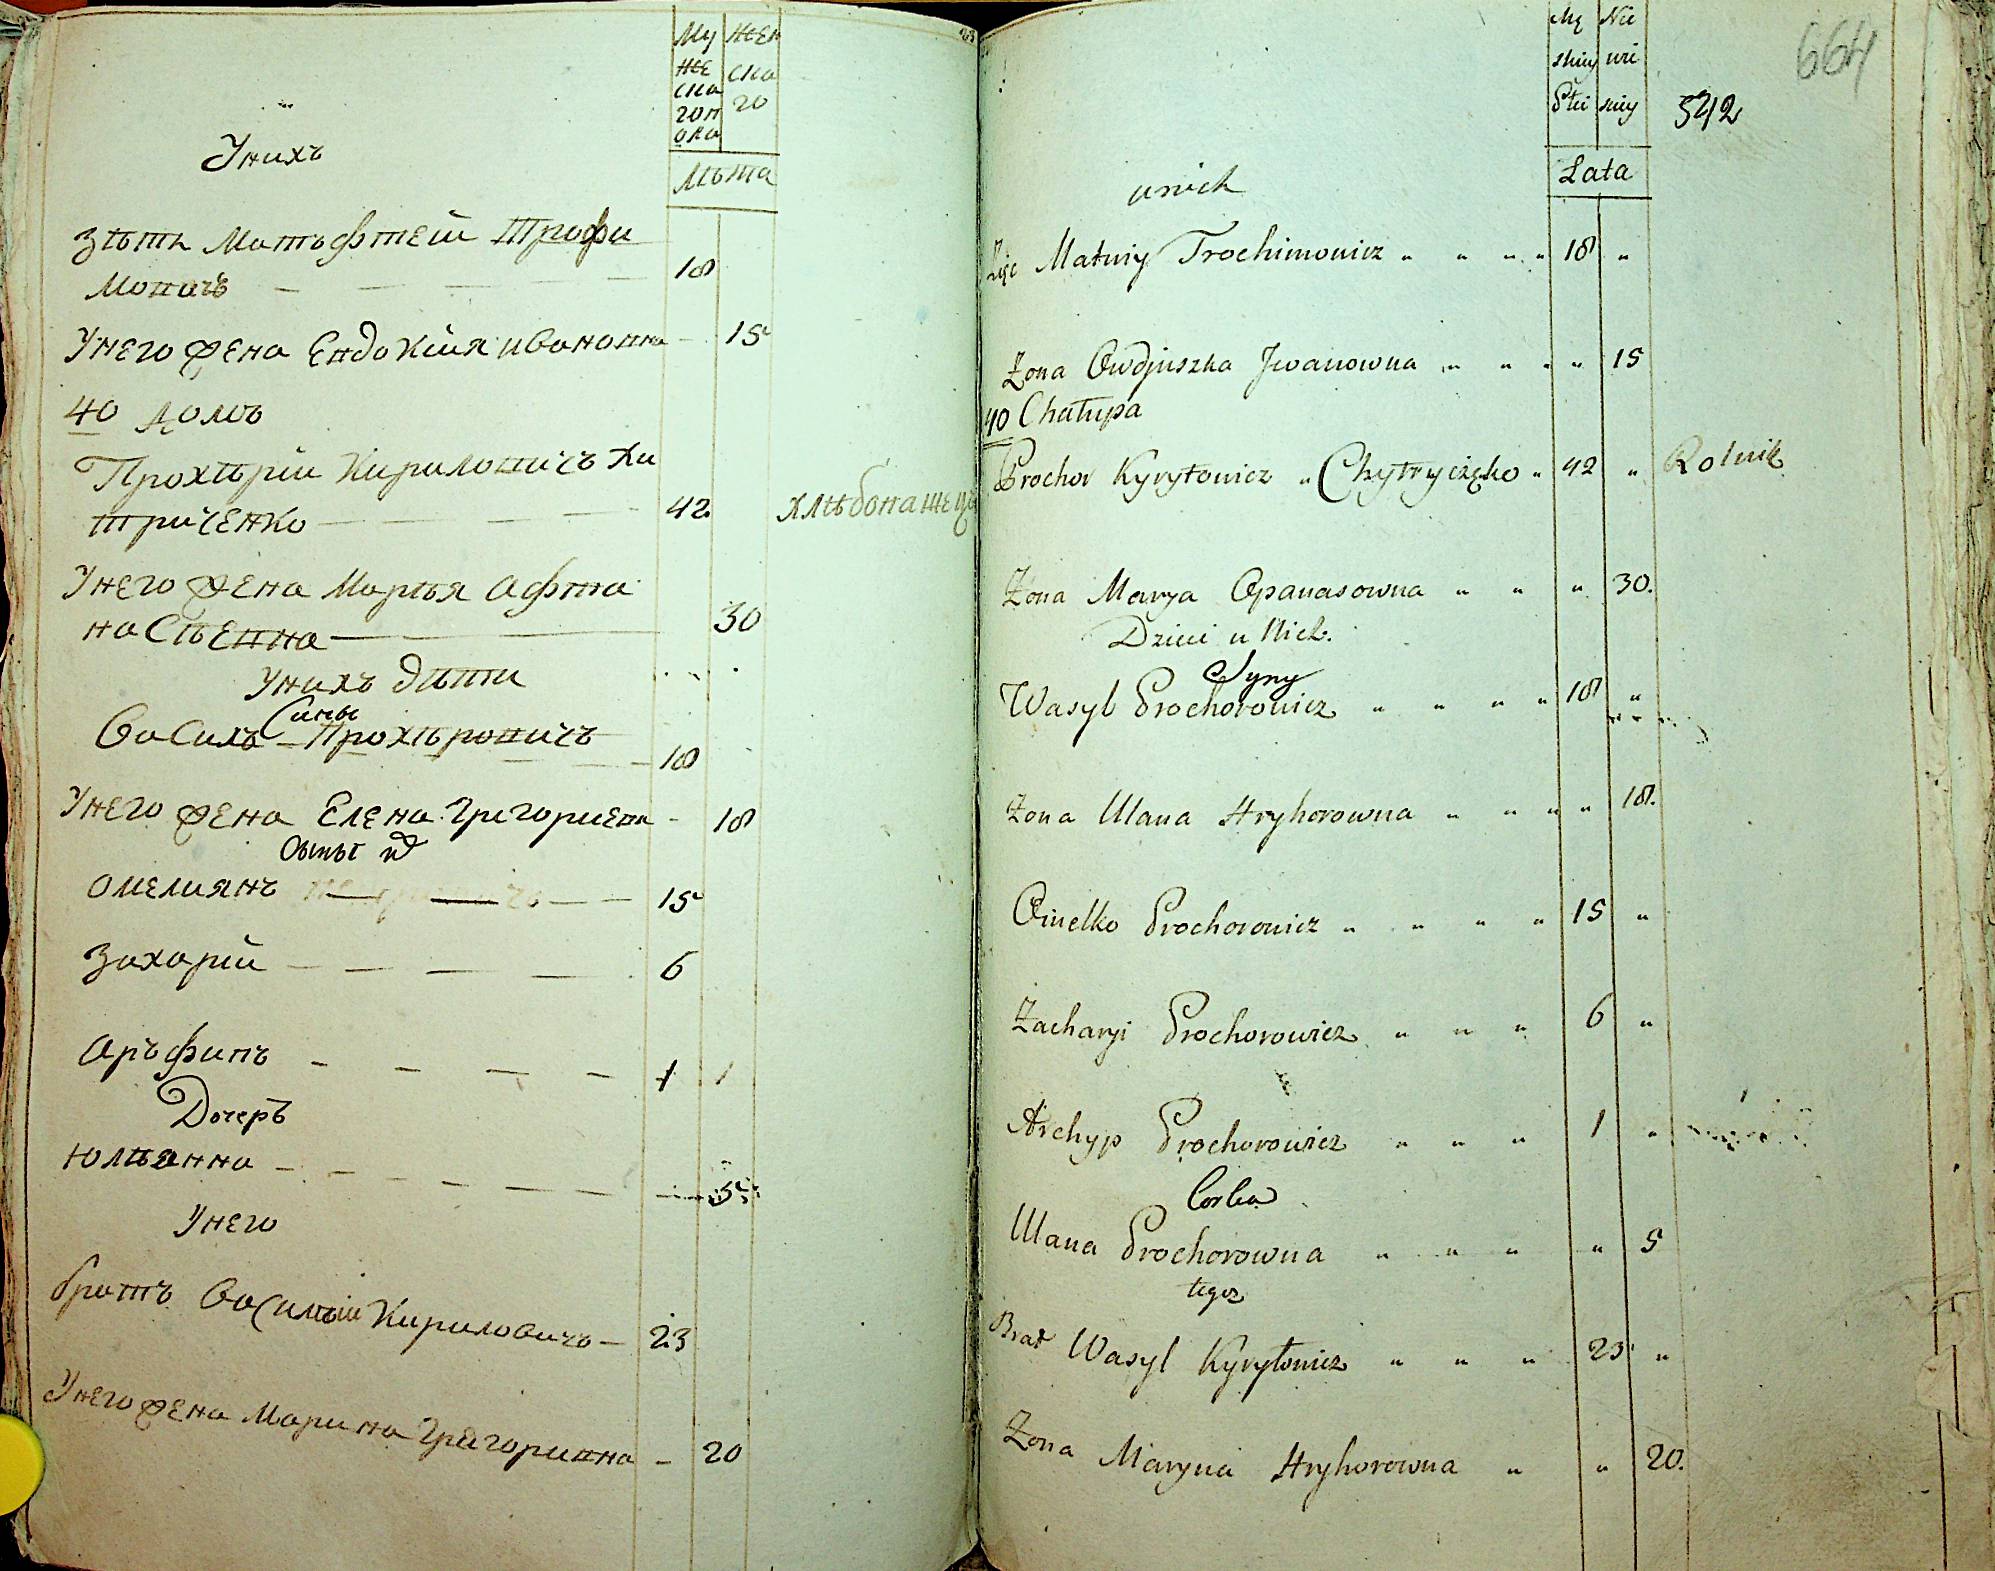 Му жен
же ска
ска го
гоп
ола
Унихъ
Лѣта
Зѣть Матьфтей Трофи
мовичь 18
Унего жена Евдокия ивановна 15
40 домъ
Прохъріи Кириловичъ Хи
триченко 42. хлѣбопашецъ
Унего жена Марья Афта
насъевна 30
Унихъ дѣти
Сины
Василъ Прохъровичъ 18
Унего жена Елена Григориевн 18
Омелиянъ 15
Захарій 6
Аръфипъ 1 1
Дочеръ
Юлѣанна 5
Унего
братъ Василѣй Кириловичъ 23
Унего жена Марина Григоривна 20
664
Mę Nie
skiey wie
Płci skiey
542
unich
Lata
Zięć Matwiy Trochimowicz " " " " 18 "
Żona Owdjuszka Jwanowna " " " " 15
40 Chałupa
Prochor Kyryłowicz " Chytryczęko " 42 " Rolnik
Żona Marya Opanasowna " " " 30.
Dzieci u Nich.
Syny
Wasyl Prochorowicz " " " " 18 "
Żona Ulana Hryhorowna " " " " 18.
Omelko Prochorowicz " " " " 15 "
Zacharyi Prochorowicz " " " 6 "
Archyp Prochorowicz " " " 1 "
Corka
Ulana Prochorowna " " " " 5
tegoz
Brat Wasyl Kyryłowicz " " " 23 "
Żona Maryna Hryhorowna " " 20.